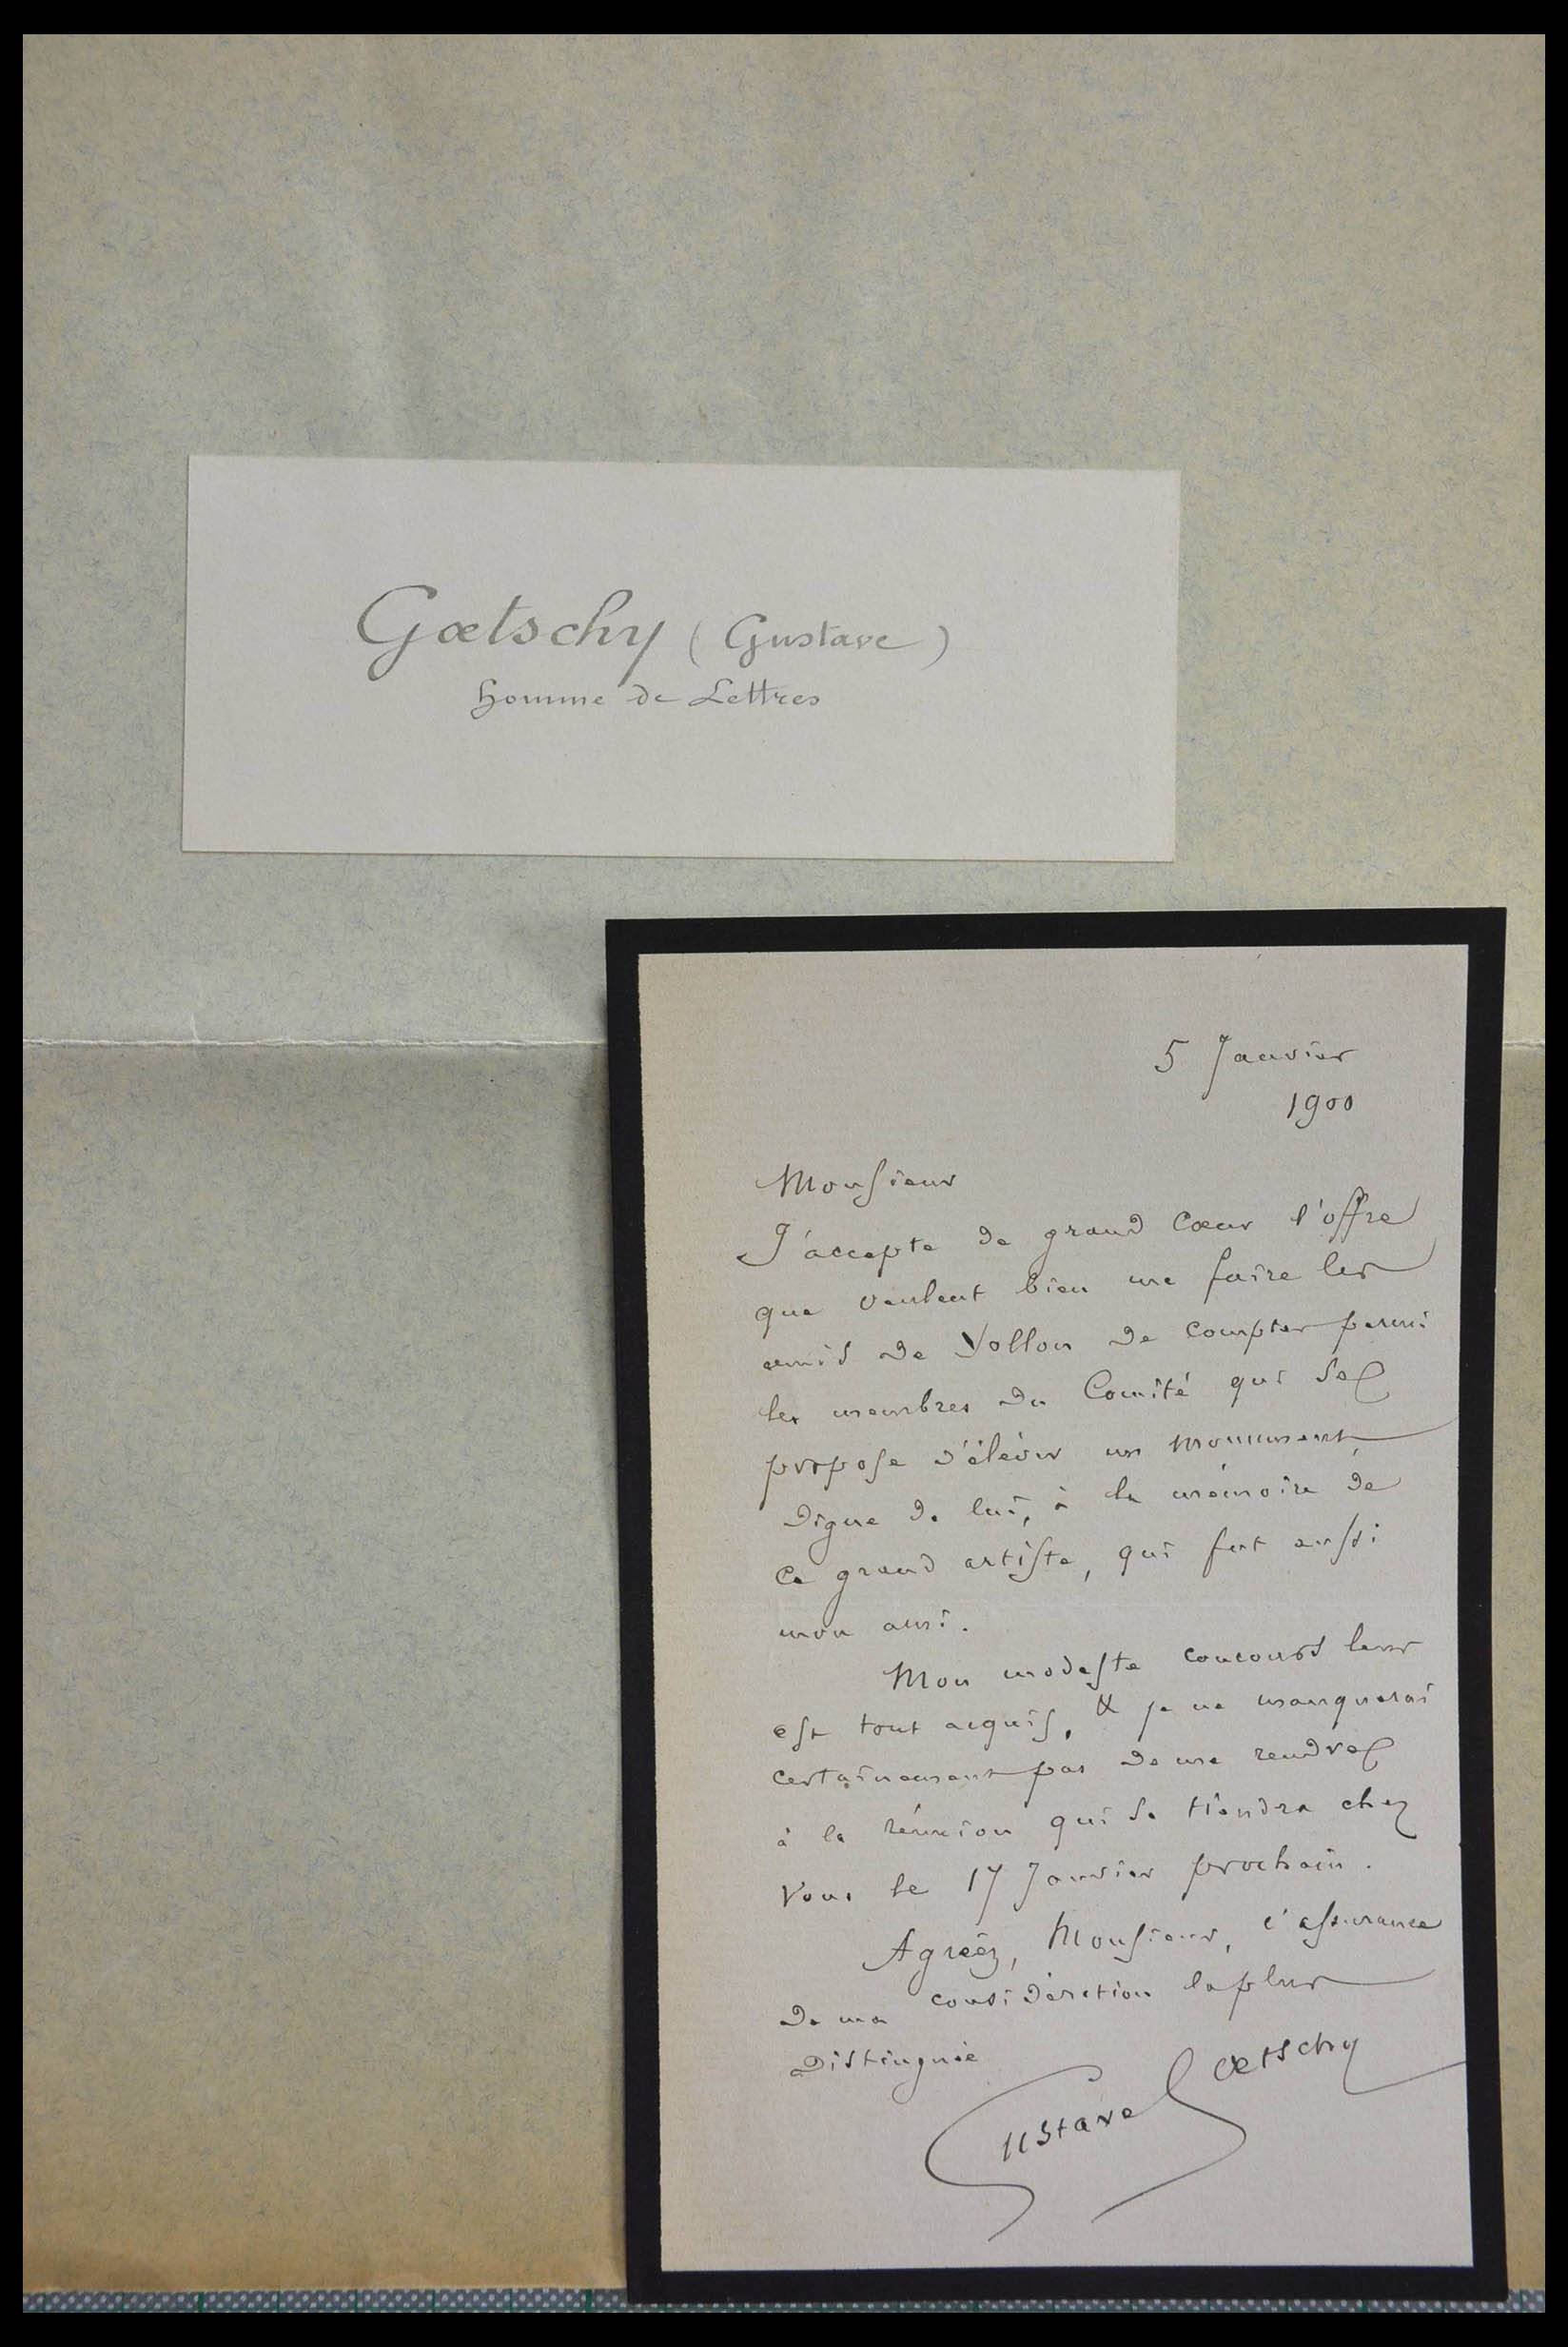 Gœtschy (Gustave)
Homme de Lettres
5 Janvier
1900
Monsieur
J'accepte de grand cœur l'offre
que veulent bien me faire les
amis de Vollon de compter parmi
les membres du Comité qui se
propose d'élever un monument
digne de lui, à la mémoire de
ce grand artiste, qui fut aussi
mon ami.
Mon modeste concours leur
est tout acquis, & je ne manquerai
certainement pas de me rendre
à la réunion qui se tiendra chez
vous le 17 Janvier prochain.
Agréez, Monsieur, l'assurance
de ma considération la plus
distinguée
Gustave Gœtschy